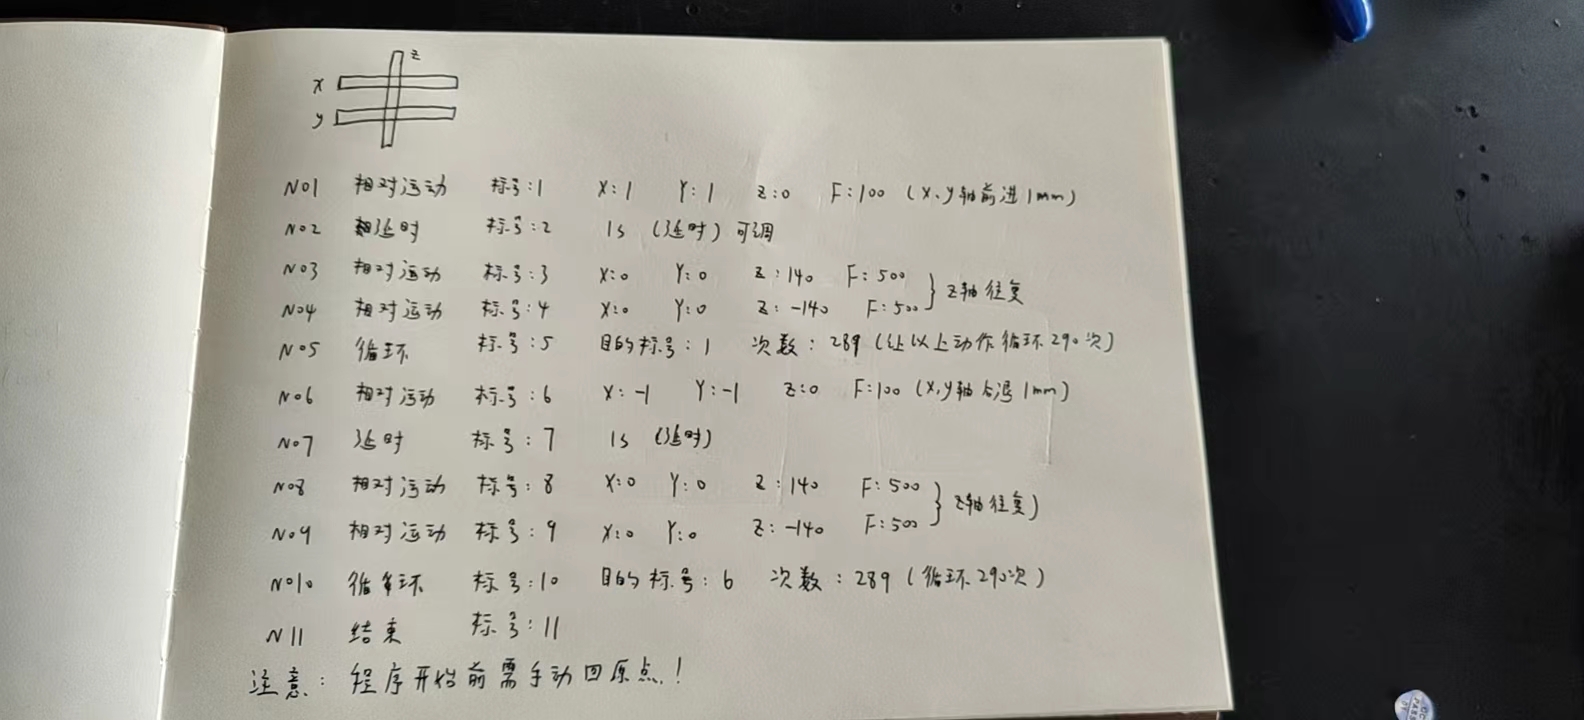 z
x
y
N01 相对运动 标号:1 X:1 Y:1 Z:0 F:100 (X、y轴前进1mm)
N02 延时 标号:2 1s (延时) 可调
N03 相对运动 标号:3 X:0 Y:0 Z:140 F:500
N04 相对运动 标号:4 X:0 Y:0 Z:-140 F:500 } Z轴往复
N05 循环 标号:5 目的标号:1 次数:289 (让以上动作循环290次)
N06 相对运动 标号:6 X:-1 Y:-1 Z:0 F:100 (X,y轴后退1mm)
N07 延时 标号:7 1s (延时)
N08 相对运动 标号:8 X:0 Y:0 Z:140 F:500
N09 相对运动 标号:9 X:0 Y:0 Z:-140 F:500 } Z轴往复)
N010 循环 标号:10 目的标号:6 次数:289 (循环290次)
N11 结束 标号:11
注意:程序开始前需手动回原点!